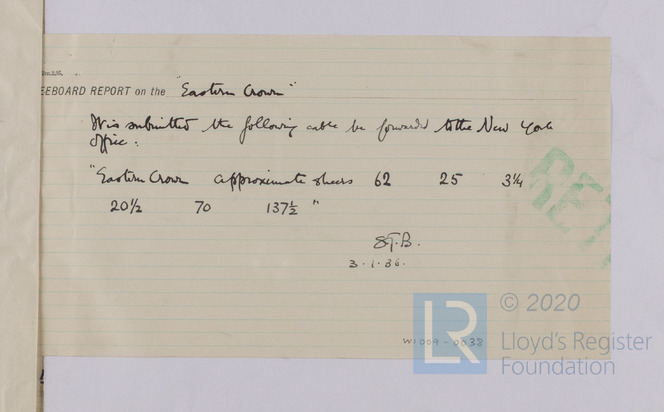 EEBOARD REPORT on the "Eastern Crown"
It is submitted the following cable be forwarded to the New York
office:
"Eastern Crown approximate sheers 62 25 3¼
20½ 70 137½ "
S.T.B.
3.1.36.
RET
W1009-0038
LR
© 2020
Lloyd's Register
Foundation